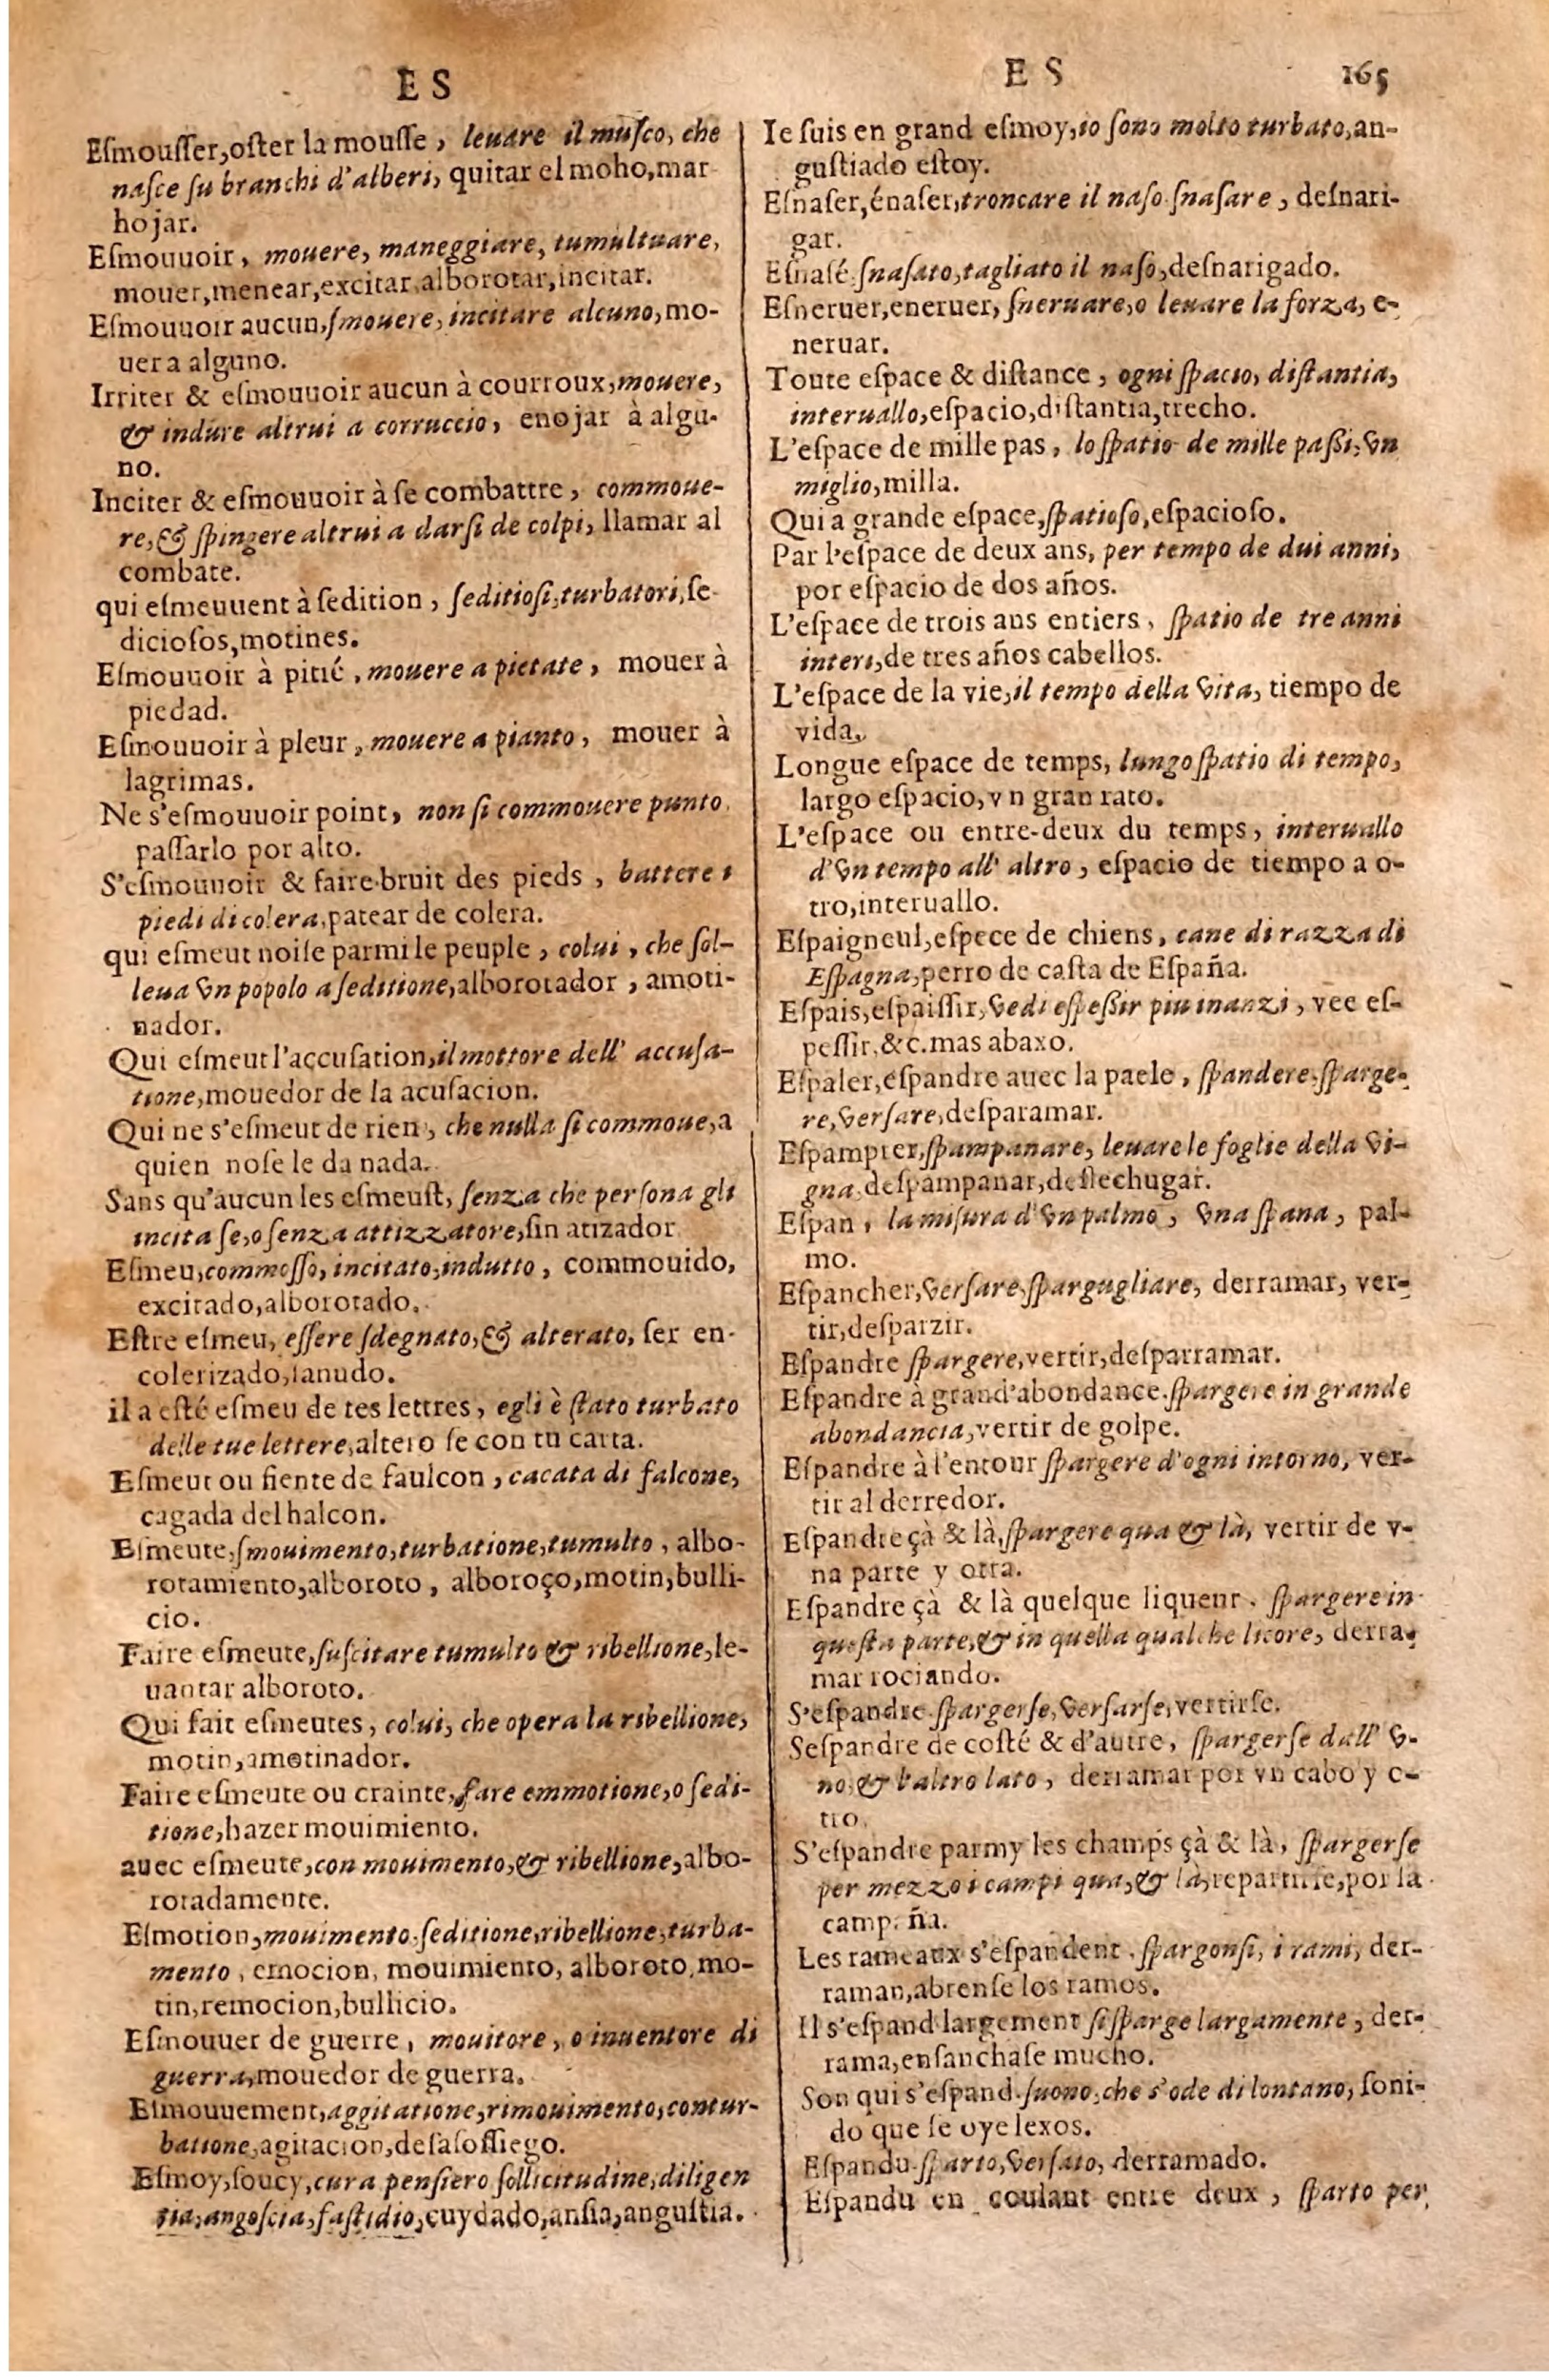 E S
Eſmouſſer,oſter la mouſſe, leuare il muſco, che
naſce ſu branchi d'alberi, quitar el moho,mar
hojar.
Eſmouuoir, mouere, maneggiare, tumultuare,
mouer,menear,excitar,alborotar,incitar.
Eſmouuoir aucun,ſmouere,incitare alcuno,mo-
uer a alguno.
Irriter & eſmouuoir aucun à courroux,mouere,
& indure altrui a corruccio, enojar à algu-
no.
Inciter & eſmouuoir à ſe combattre, commoue-
re,& ſpingere altrui a darſi de colpi, llamar al
combate.
qui eſmeuuent à ſedition, ſeditioſi,turbatori,ſe-
dicioſos,motines.
Eſmouuoir à pitié, mouere a pietate, mouer à
piedad.
Eſmouuoir à pleur, mouere a pianto, mouer à
lagrimas.
Ne s'eſmouuoir point, non ſi commouere punto,
paſſarlo por alto.
S'eſmouuoir & faire bruit des pieds, battere i
piedi di colera,patear de colera.
qui eſmeut noiſe parmi le peuple, colui, che ſol-
leua vn popolo a ſeditione,alborotador, amoti-
nador.
Qui eſmeut l'accuſation,il mottore dell' accuſa-
tione,mouedor de la acuſacion.
Qui ne s'eſmeut de rien, che nulla ſi commoue,a
quien noſe le da nada.
Sans qu'aucun les eſmeuſt, ſenza che perſona gli
incitaſe,o ſenza attizzatore,ſin atizador
Eſmeu,commoſſo,incitato,indutto, commouido,
excitado,alborotado.
Eſtre eſmeu, eſſere ſdegnato,& alterato, ſer en-
colerizado,ſanudo.
il a eſté eſmeu de tes lettres, egli è ſtato turbato
delle tue lettere,altero ſe con tu carta.
Eſmeut ou fiente de faulcon, cacata di falcone,
cagada del halcon.
Eſmeute,ſmouimento,turbatione,tumulto, albo-
rotamiento,alboroto, alboroço,motin,bulli-
cio.
Faire eſmeute,ſuſcitare tumulto & ribellione,le-
uantar alboroto.
Qui fait eſmeutes, colui, che opera la ribellione,
motin,amotinador.
Faire eſmeute ou crainte,fare emmotione,o ſedi-
tione,hazer mouimiento.
auec eſmeute,con mouimento,& ribellione,albo-
rotadamente.
Eſmotion,mouimento,ſeditione,ribellione,turba-
mento, emocion, mouimiento, alboroto,mo-
tin,remocion,bullicio.
Eſmouuer de guerre, mouitore, o inuentore di
guerra,mouedor de guerra.
Eſmouuement,aggitatione,rimouimento,contur-
batione,agitacion,deſaſoſſiego.
Eſmoy,ſoucy,cura penſiero ſollicitudine,diligen
tia,angoſcia,faſtidio,cuydado,anſia,anguſtia.
E S 165
Ie ſuis en grand eſmoy,io ſono molto turbato,an-
guſtiado eſtoy.
Eſnaſer,énaſer,troncare il naſo ſnaſare, deſnari-
gar.
Eſnaſé ſnaſato,tagliato il naſo,deſnarigado.
Eſneruer,eneruer, ſneruare,o leuare la forza, e-
neruar.
Toute eſpace & diſtance, ogni ſpacio, diſtantia,
interuallo,eſpacio,diſtantia,trecho.
L'eſpace de mille pas, lo ſpatio de mille paßi,vn
miglio,milla.
Qui a grande eſpace,ſpatioſo,eſpacioſo.
Par l'eſpace de deux ans, per tempo de dui anni,
por eſpacio de dos años.
L'eſpace de trois ans entiers, ſpatio de tre anni
interi,de tres años cabellos.
L'eſpace de la vie,il tempo della vita, tiempo de
vida.
Longue eſpace de temps, lungo ſpatio di tempo,
largo eſpacio,vn gran rato.
L'eſpace ou entre-deux du temps, interuallo
d'vn tempo all' altro, eſpacio de tiempo a o-
tro,interuallo.
Eſpaigneul,eſpece de chiens, cane di razza di
Eſpagna,perro de caſta de Eſpaña.
Eſpais,eſpaiſſir,vedi eſpeßir piu inanzi, vee eſ-
peſſir,&c.mas abaxo.
Eſpaler,eſpandre auec la paele, ſpandere,ſparge-
re,verſare,deſparamar.
Eſpampter,ſpampanare, leuare le foglie della vi-
gna,deſpampanar,deſlechugar.
Eſpan, la miſura d'vn palmo, vna ſpana, pal-
mo.
Eſpancher,verſare,ſpargugliare, derramar, ver-
tir,deſparzir.
Eſpandre ſpargere,vertir,deſparramar.
Eſpandre à grand'abondance,ſpargere in grande
abondancia,vertir de golpe.
Eſpandre à l'entour ſpargere d'ogni intorno, ver-
tir al derredor.
Eſpandre çà & là,ſpargere qua & là, vertir de v-
na parte y otra.
Eſpandre çà & là quelque liqueur, ſpargere in
queſta parte,& in quella qualche licore, derra-
mar rociando.
S'eſpandre ſpargerſe,verſarſe,vertirſe.
Seſpandre de coſté & d'autre, ſpargerſe dall' v-
no,& l'altro lato, derramar por vn cabo y o-
tro.
S'eſpandre parmy les champs çà & là, ſpargerſe
per mezzo i campi qua,& là,repartirſe,por la
campaña.
Les rameaux s'eſpandent, ſpargonſi, i rami, der-
raman,abrenſe los ramos.
Il s'eſpand largement ſi ſparge largamente, der-
rama,enſanchaſe mucho.
Son qui s'eſpand ſuono,che s'ode di lontano, ſoni-
do que ſe oye lexos.
Eſpandu ſparto,verſato, derramado.
Eſpandu en coulant entre deux, ſparto per